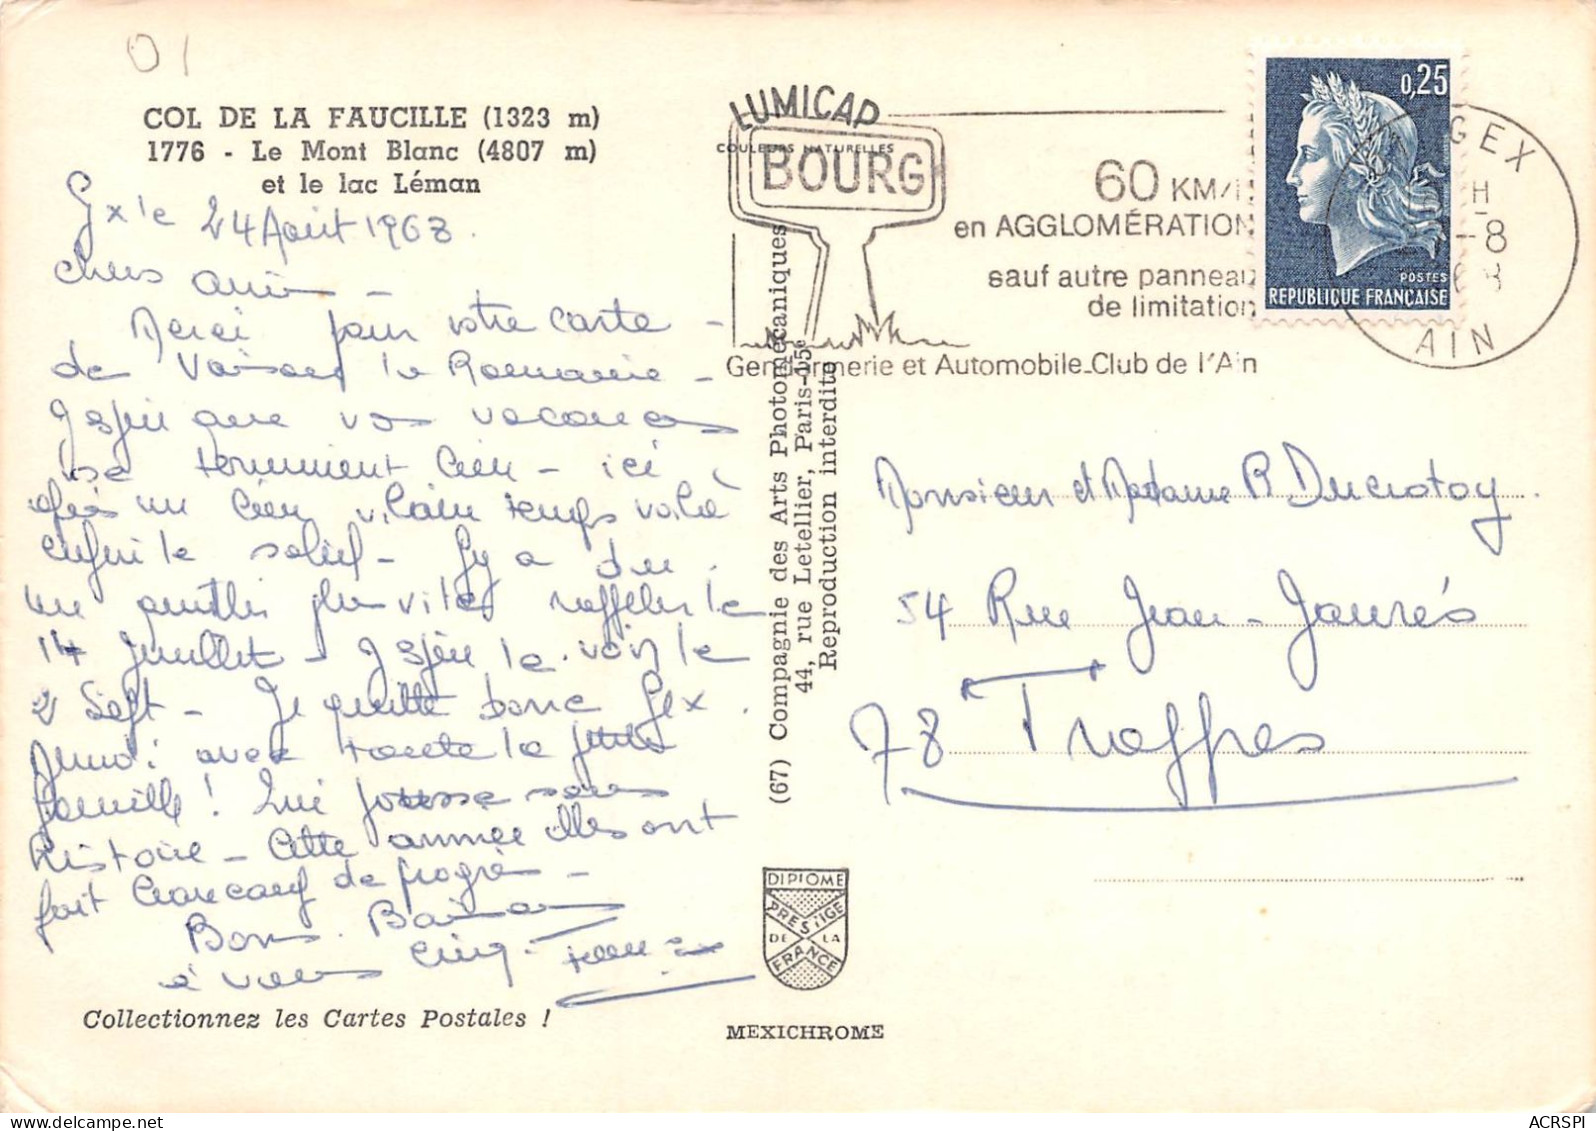 01
COL DE LA FAUCILLE (1323 m)
1776 - Le Mont Blanc (4807 m)
et le lac Léman
Gex le 24 Août 1968.
Chers Amis -
Merci pour votre carte -
de Vaison la Romaine -
J'espère que vos vacances
se terminent bien - ici
après un bien vilain temps voilà
enfin le soleil - Gy a du
me quitter plus vite rappeler le
14 Juillet - J'espère le voir le
2 Sept - Je quitte donc Gex
Jeudi avec toute la petite
famille ! sans
histoire - Cette année elles ont
fait beaucoup de progrès -
Bons Baisers
à vous cinq.
Collectionnez les Cartes Postales !
LUMICAP
COULEURS NATURELLES
BOURG
60 KM/H
en AGGLOMÉRATION
sauf autre panneau
de limitation
Gendarmerie et Automobile-Club de l'Ain
0,25
POSTES
REPUBLIQUE FRANÇAISE
GEX
H
-8
AIN
(67) Compagnie des Arts Photomécaniques
44, rue Letellier, Paris-15e
Reproduction interdite
Monsieur et Madame R. Ducrotoy
54 Rue Jean-Jaurès
78 Trappes
DIPLOME
PRESTIGE
DE LA
FRANCE
MEXICHROME
ACRSPI